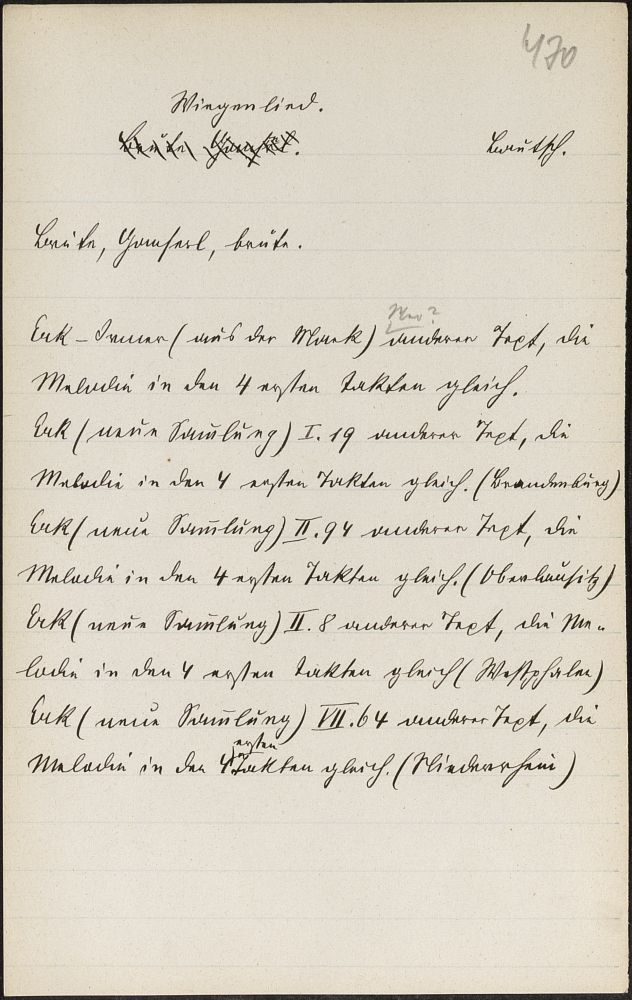 470
Wiegenlied.
Bautsch.
Erk – Irmer (aus der Mark) anderer Text, die
Melodie in den 4 ersten Takten gleich.
Erk (neue Sam̅lung) I. 19 anderer Text, die
Melodie in den 4 ersten Takten gleich. (Brandenburg)
Erk (neue Sam̅lung) II. 94 anderer Text, die
Melodie in den 4 ersten Takten gleich. (Oberlausitz)
Erk (neue Sam̅lung) II. 8 anderer Text, die Me-
lodie in den 4 ersten Takten gleich (Westphalen)
Erk (neue Sam̅lung) VII. 64 anderer Text, die
Melodie in den 4 ersten Takten gleich. (Niederrhein)